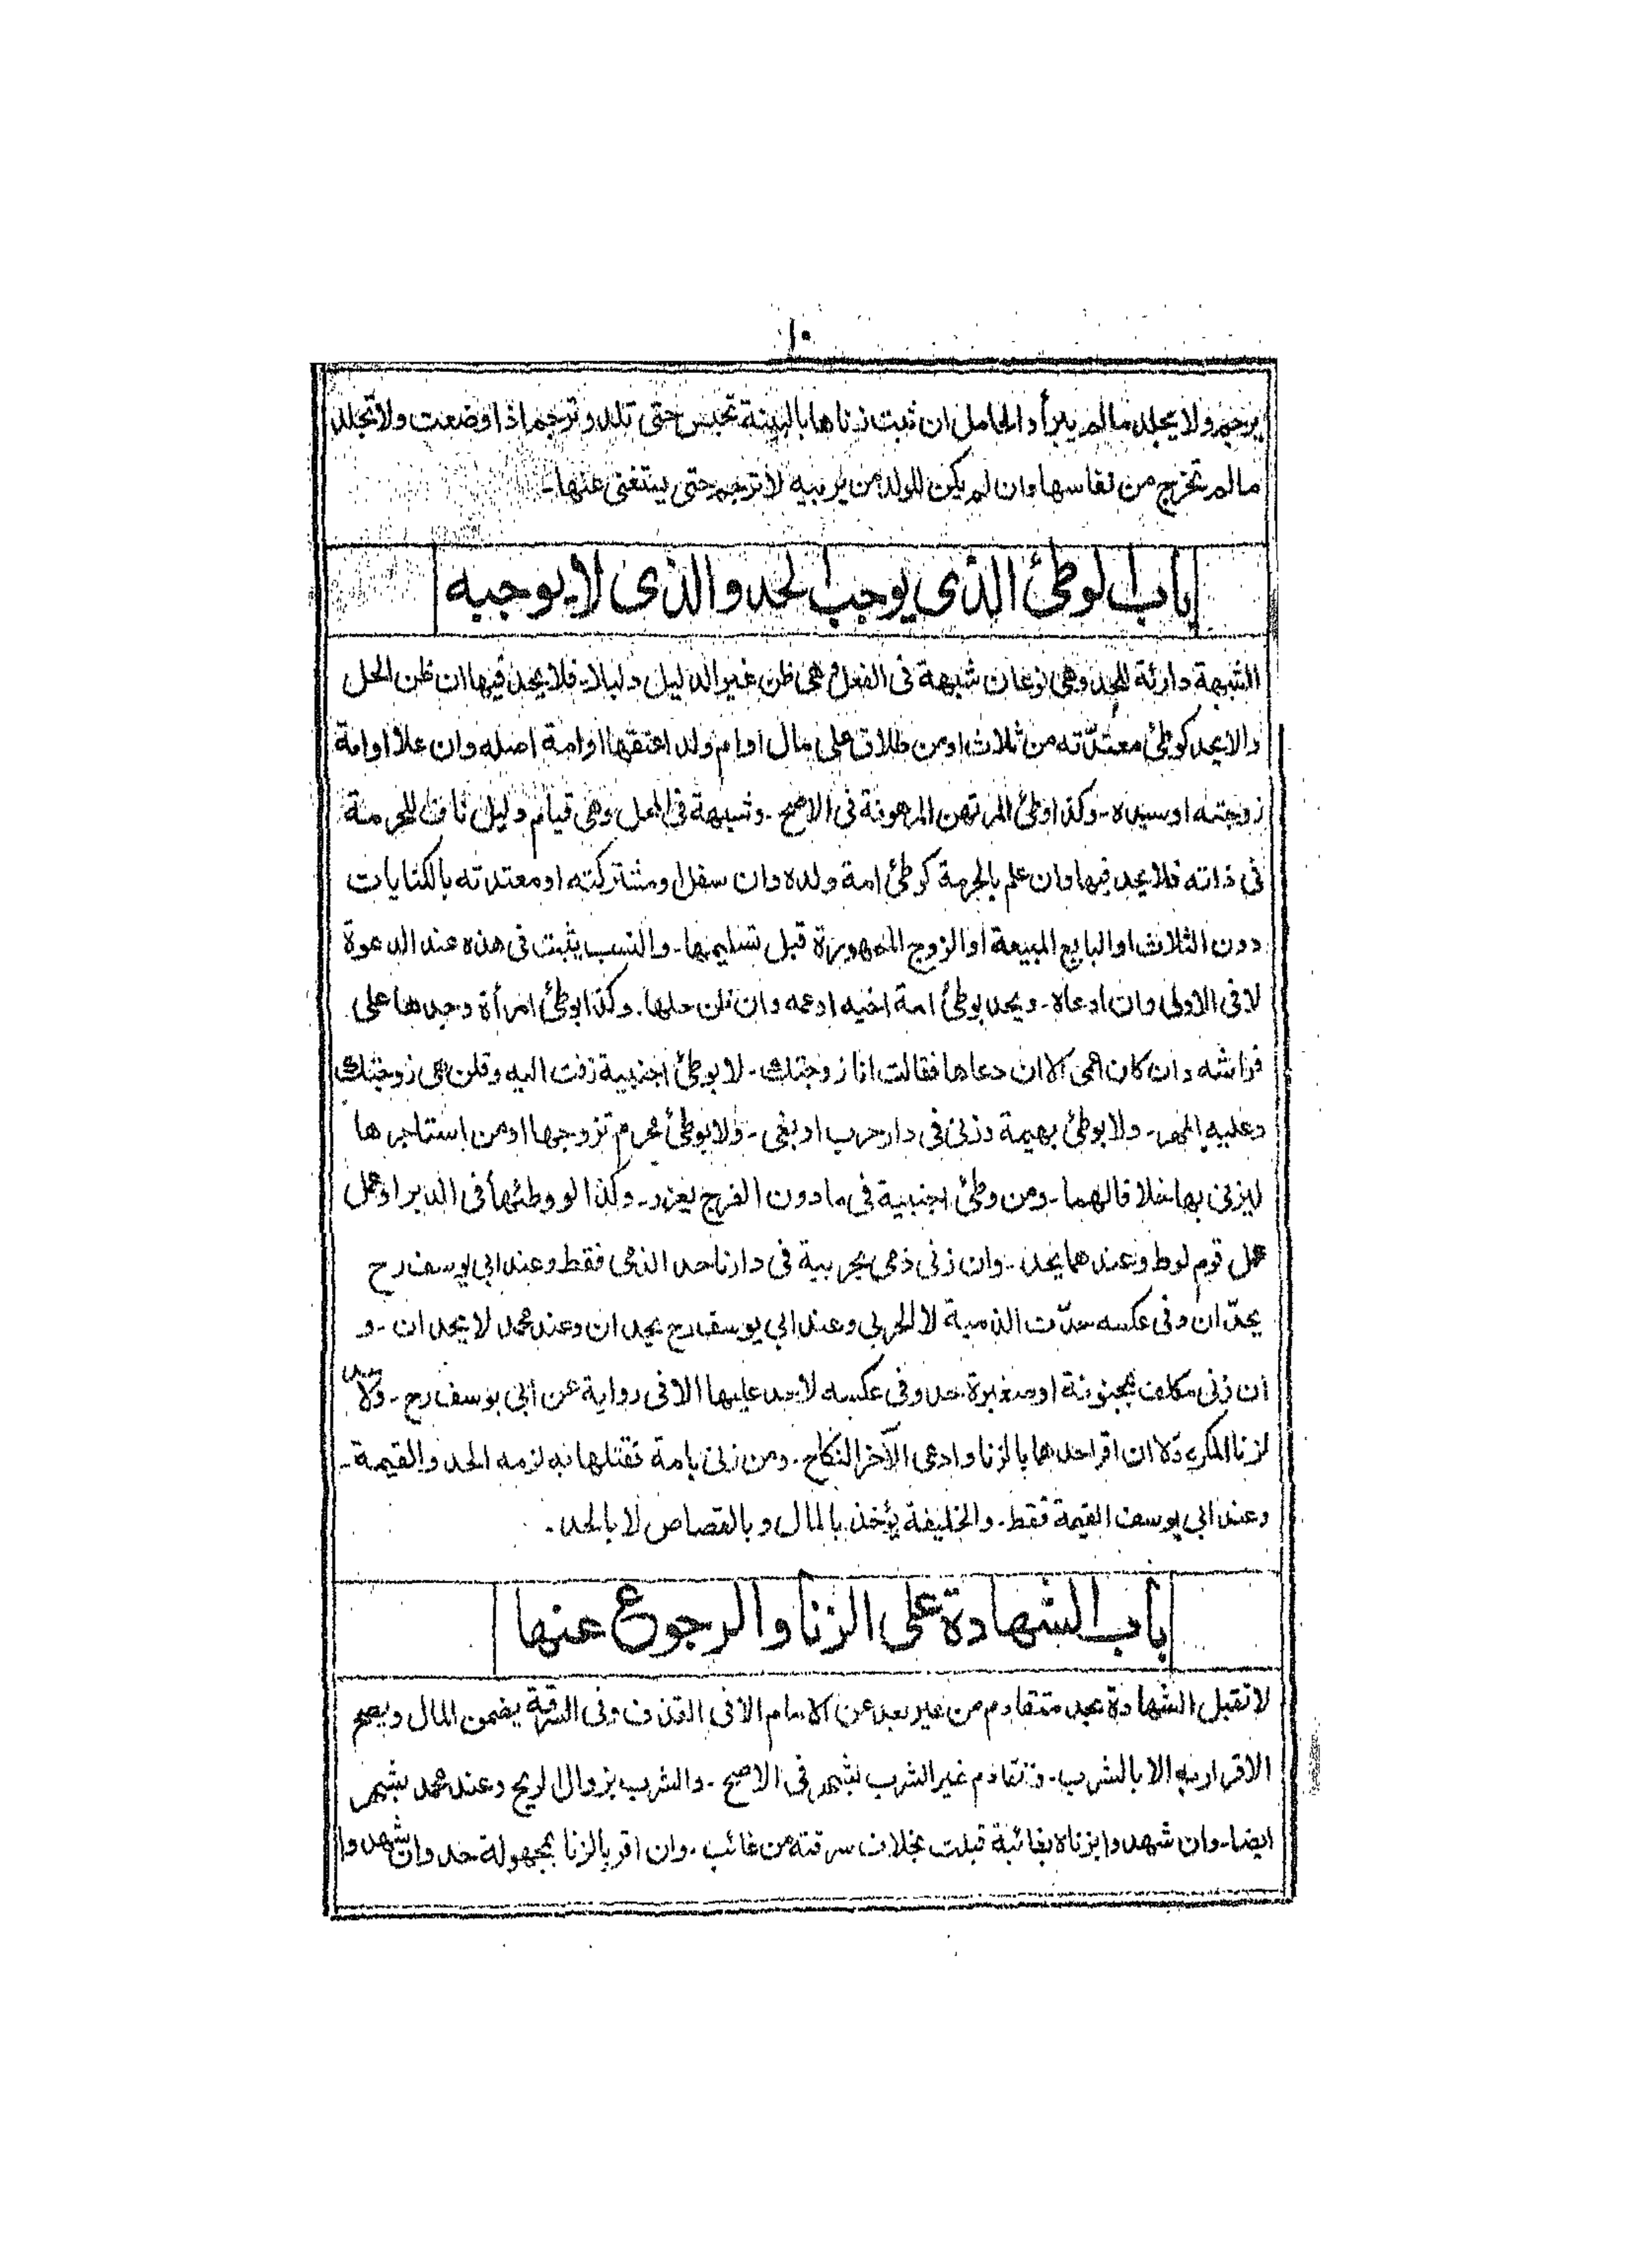 ١٠
يرجم ولا يجلد ما لم يبرأ والحامل ان ثبت زناها بالبينة تحبس حتى تلد و ترجم اذا وضعت ولا تجلد
ما لم تخرج من نفاسها وان لم يكن للولد من يربيه لا ترجم حتى يستغنى عنها۔
باب الوطئ الذى يوجب الحد والذى لا يوجبه
الشبهة دارئة للحد وهى نوعان شبهة فى الفعل وهى ظن غير الدليل دليلا۔ فلا يحد فيها ان ظن الحل
والا يحد كوطئ معتدّته من ثلاث او من طلاق على مال او ام ولد اعتقها او امة اصله وان علا او امة
زوجته او سيده۔ وكذا وطئ المرتهن المرهونة فى الاصح۔ وشبهة فى المحل وهى قيام دليل ناف للحرمة
فى ذاته فلا يحد فيها وان علم بالحرمة كوطئ امة ولده وان سفل او مشتركته او معتدته بالكنايات
دون الثلاث او البايع المبيعة او الزوج الممهورة قبل تسليمها۔ والنسب يثبت فى هذه عند الدعوة
لا فى الاولى وان ادعاه۔ ويحد بوطئ امة اخيه او عمه وان ظن حلها۔ وكذا بوطئ امرأة وجدها على
فراشه وان كان اعمى الا ان دعاها فقالت انا زوجتك۔ لا بوطئ اجنبية زفت اليه وقلن هى زوجتك
وعليه المهر۔ ولا بوطئ بهيمة وزنى فى دار حرب او بغى۔ ولا بوطئ محرم تزوجها او من استاجرها
ليزنى بها خلافا لهما۔ ومن وطئ اجنبية فى ما دون الفرج يعزر۔ وكذا لو وطئها فى الدبر او عمل
عمل قوم لوط وعندهما يحد۔ وان زنى ذمى بحربية فى دارنا حد الذمى فقط وعند ابى يوسف رح
يحدّان وفى عكسه حدّت الذمية لا الحربى وعند ابى يوسف رح يحدان وعند محمد لا يحدان۔ و
ان زنى مكلف بمجنونة او صغيرة حد وفى عكسه لا حد عليها الا فى رواية عن ابى يوسف رح۔ ولا حد
لزنا المكره ولا ان اقر احدهما بالزنا وادعى الآخر النكاح۔ ومن زنى بامة فقتلها به لزمه الحد والقيمة۔
وعند ابى يوسف القيمة فقط۔ والخليفة يؤخذ بالمال و بالقصاص لا بالحد۔
باب الشهادة على الزنا والرجوع عنها
لا تقبل الشهادة بحد متقادم من غير بعد عن الامام الا فى القذف وفى السرقة يضمن المال ويصح
الاقرار به الا بالشرب۔ و تقادم غير الشرب بشهر فى الاصح۔ والشرب بزوال الريح وعند محمد بشهر
ايضا۔ وان شهدوا بزناه بغائبة قبلت بخلاف سرقته من غائب۔ وان اقر بالزنا بمجهولة حد وان شهدوا